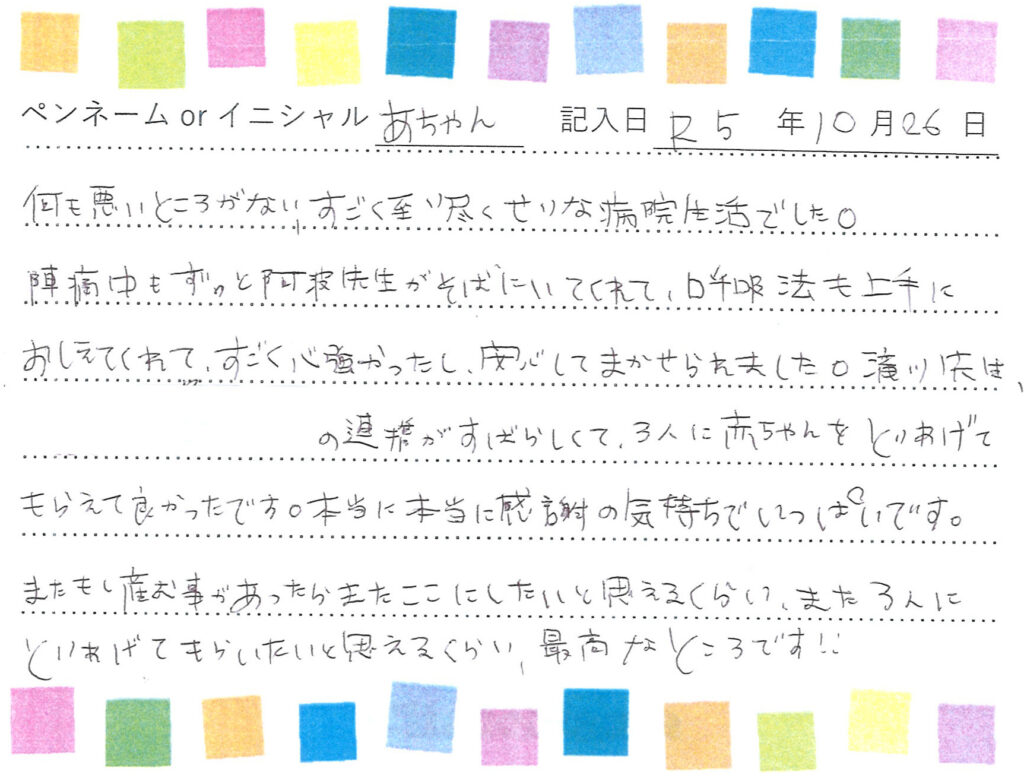 ペンネーム or イニシャル あちゃん 記入日 R5 年 10 月 26 日
何も悪いところがない、すごく至り尽くせりな病院生活でした。
陣痛中もずっと阿波先生がそばにいてくれて、呼吸法も上手に
おしえてくれて、すごく心強かったし、安心してまかせられました。滝川先生、
の連携がすばらしくて、3人に赤ちゃんをとりあげて
もらえて良かったです。本当に本当に感謝の気持ちでいっぱいです。
またもし産む事があったらまたここにしたいと思えるくらい、また3人に
とりあげてもらいたいと思えるくらい、最高なところです!!